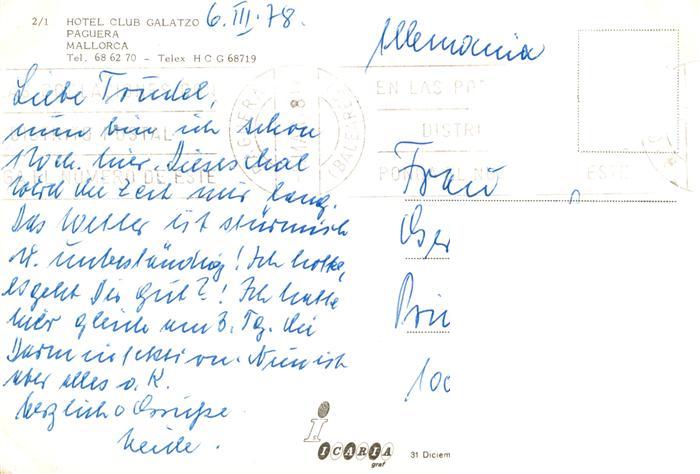 2/1 HOTEL CLUB GALATZO
PAGUERA
MALLORCA
Tel. 68 62 70 - Telex H C G 68719
6. III. 78.
Liebe Trudel,
nun bin ich schon
1 Woch. hier. Dieses mal
wird die Zeit mir lang.
Das Wetter ist stürmisch
u. unbeständig! Ich hoffe,
es geht Dir gut?! Ich hatte
hier gleich am 3. Tg. die
Darminfektion. Nun ist
aber alles o.K.
Herzliche Grüße
Heide.
Allemania
EN LAS PO
DISTRI
PO
ESTE
NUMERO DE ESTE
PAGUERA
(BALEARES)
Frau
Ger
Prin
100
ICARIA
graf
31 Diciem